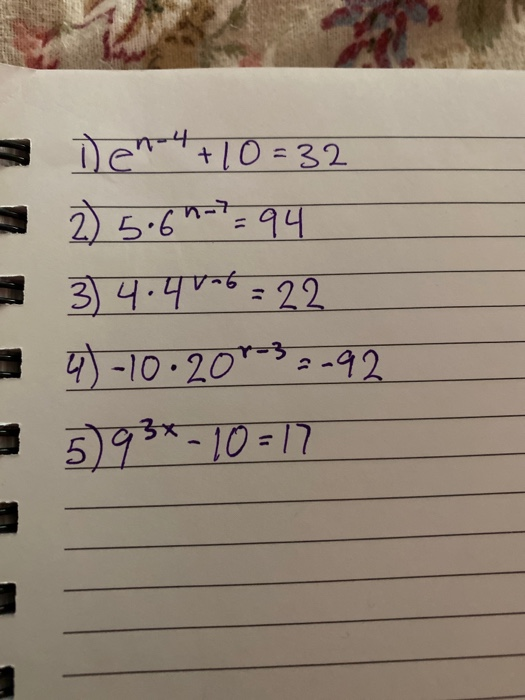 1) e^{n-4} + 10 = 32
2) 5·6^{n-7} = 94
3) 4·4^{v-6} = 22
4) -10·20^{r-3} = -92
5) 9^{3x} - 10 = 17